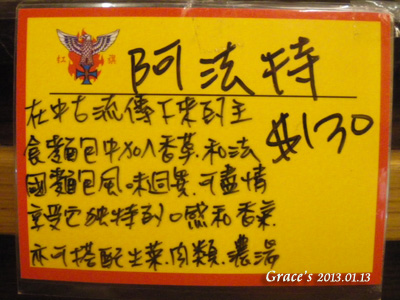 紅 旗
阿法特
$130
在中古流傳下來的主
食麵包中加入香草.和法
國麵包風味迥異.可盡情
享受它独特的口感和香氣.
亦可搭配生菜.肉類.濃湯
Grace's 2013.01.13